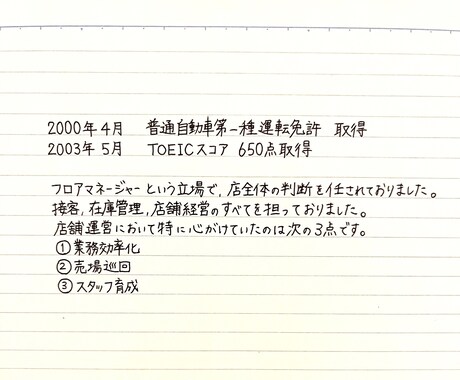 2000年4月 普通自動車第一種運転免許 取得
2003年5月 TOEICスコア 650点取得
フロアマネージャーという立場で、店全体の判断を任されておりました。
接客、在庫管理、店舗経営のすべてを担っておりました。
店舗運営において特に心がけていたのは次の3点です。
①業務効率化
②売場巡回
③スタッフ育成